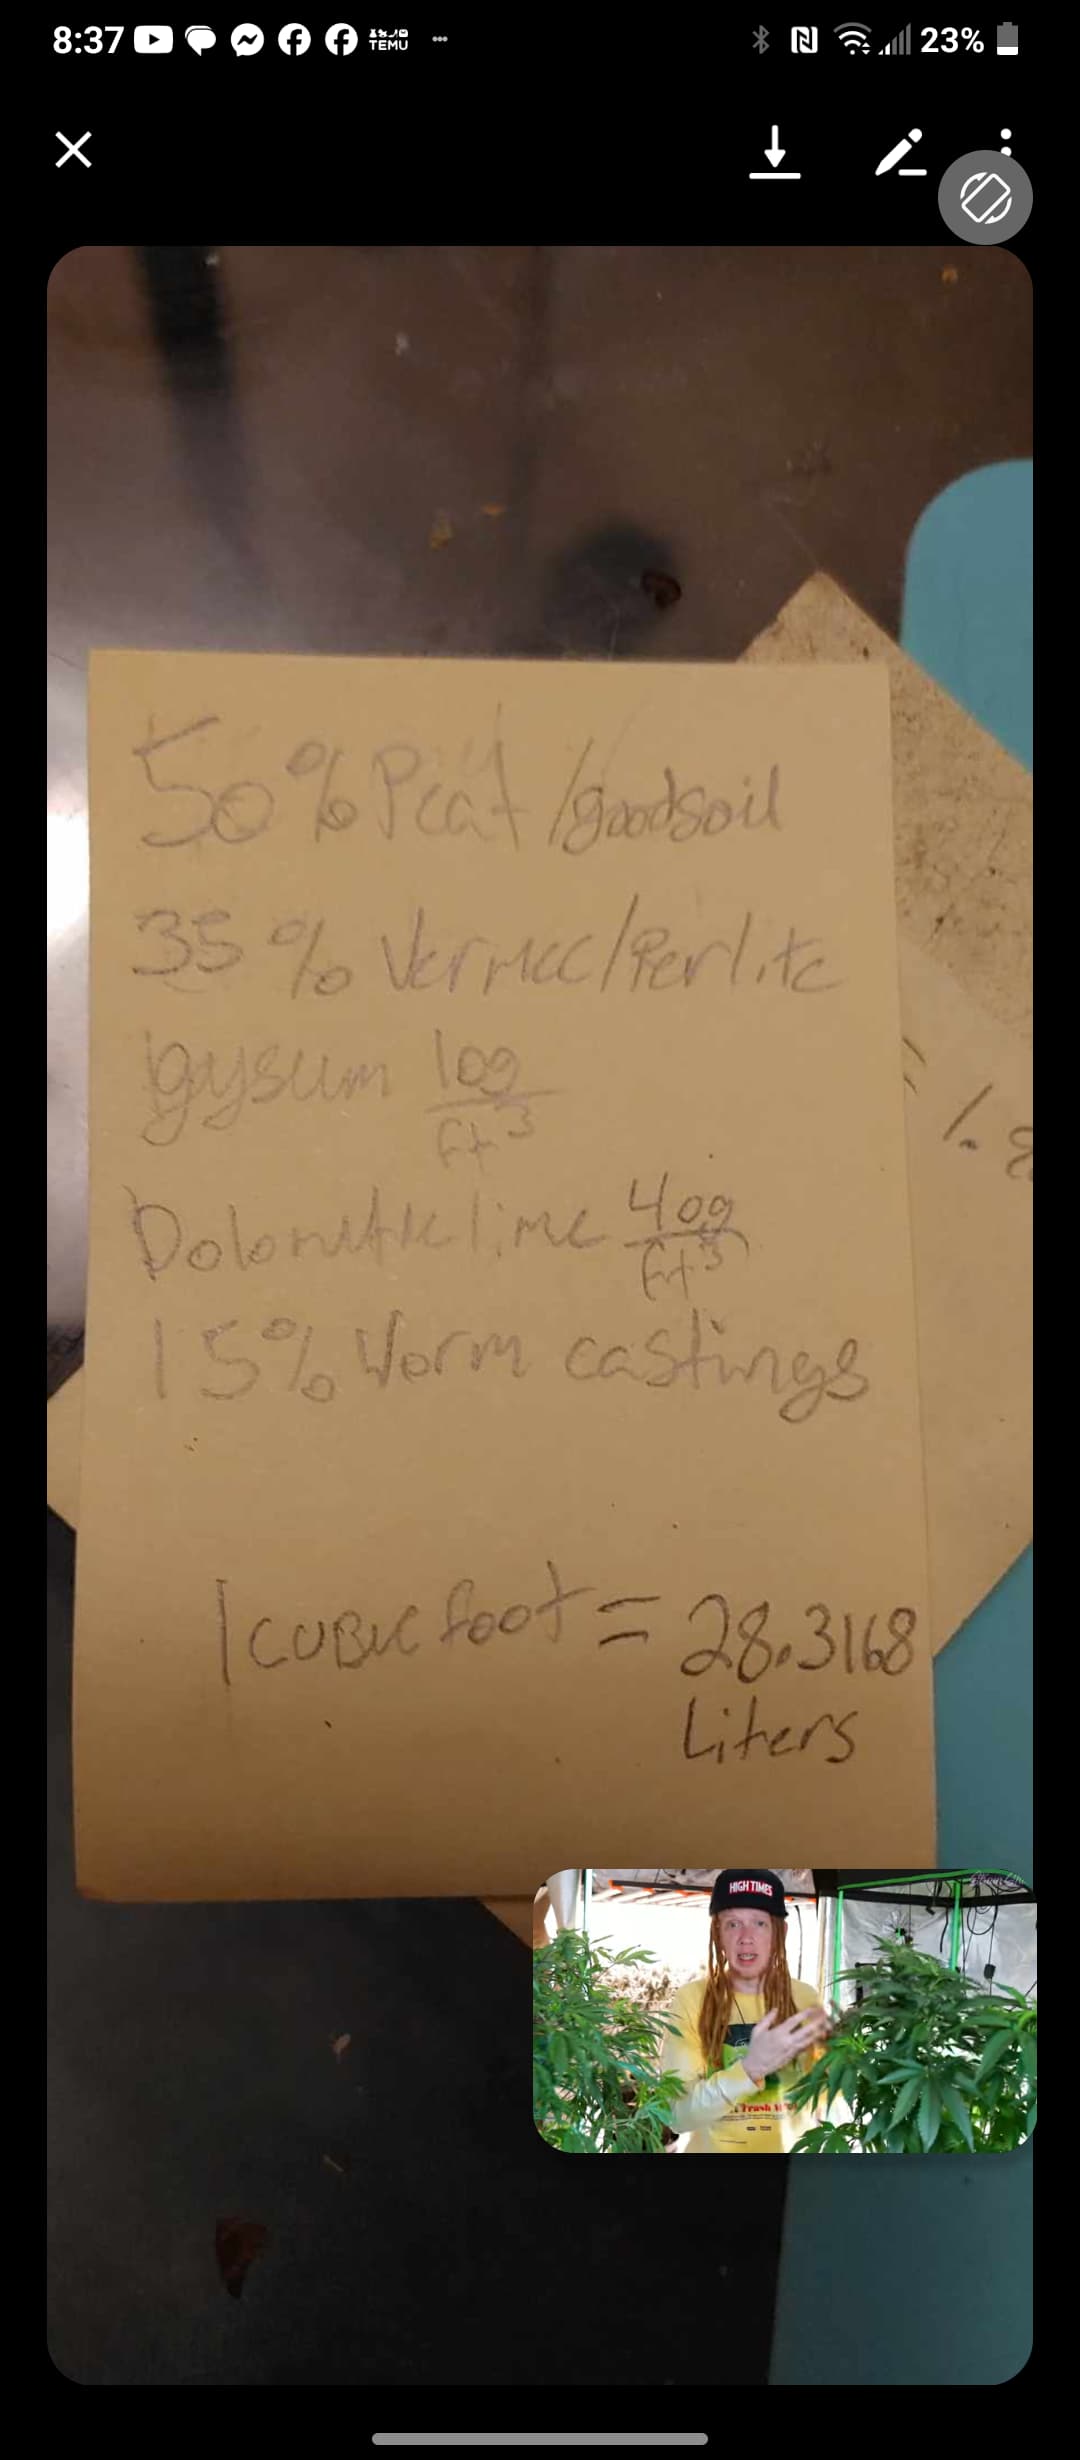 8:37
TEMU
23%
50% Peat/goodsoil
35% Vermicc/Perlite
gysum 10g
ft3
Dolomitic lime 40g
ft3
15% Worm castings
1 cubic foot = 28.3168
Liters
HIGH TIMES